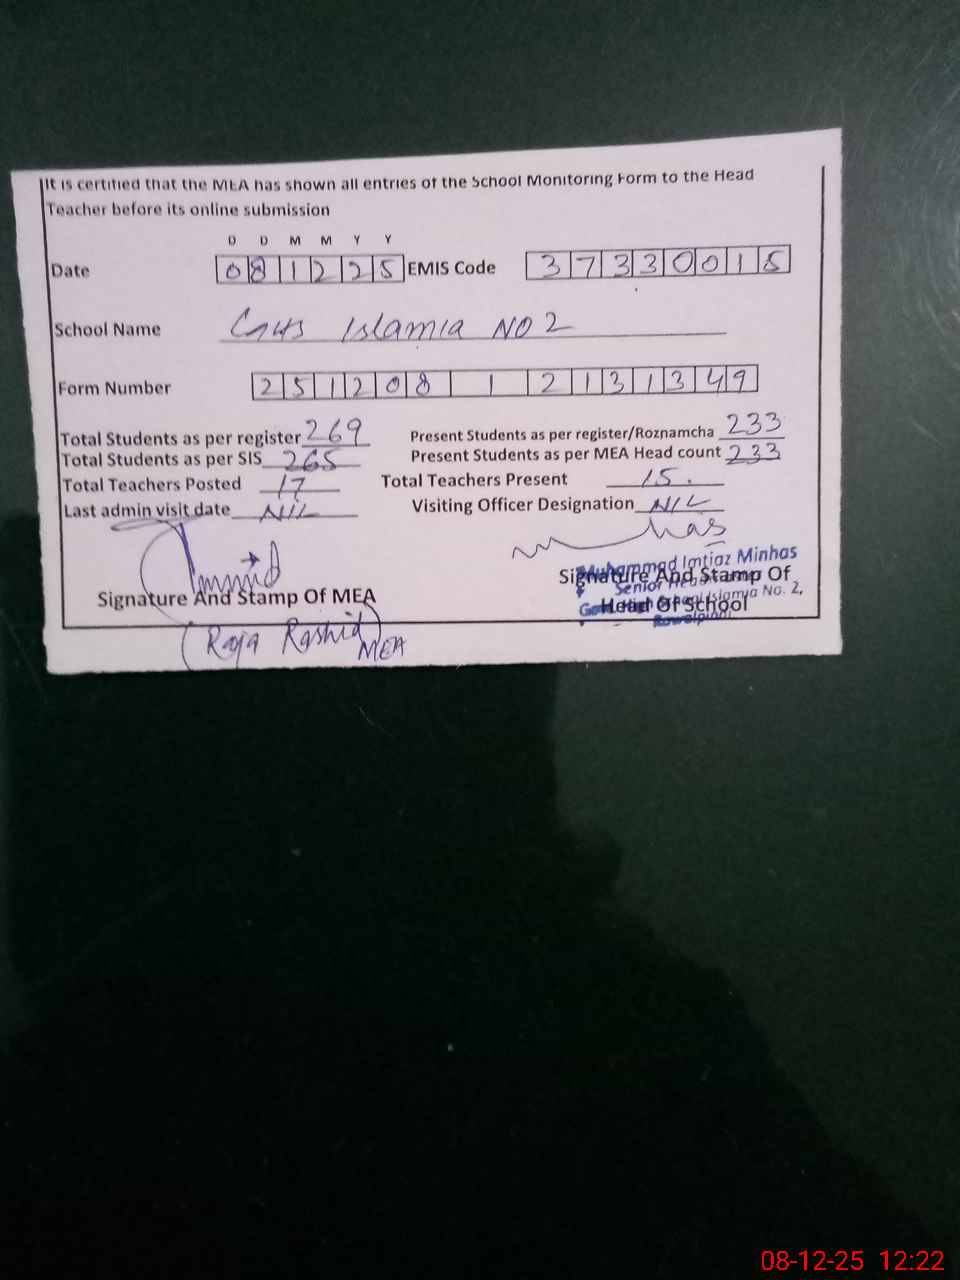 It is certified that the MEA has shown all entries of the School Monitoring Form to the Head
Teacher before its online submission
D D M M Y Y
Date 0 8 1 2 2 5 EMIS Code 3 7 3 3 0 0 1 5
School Name GHS Islamia NO 2
Form Number 2 5 1 2 0 8 1 2 1 3 1 3 4 9
Total Students as per register 269 Present Students as per register/Roznamcha 233
Total Students as per SIS 265 Present Students as per MEA Head count 233
Total Teachers Posted 17 Total Teachers Present 15.
Last admin visit date NIL Visiting Officer Designation NIL
Muhammad Imtiaz Minhas
Signature And Stamp Of
Senior
Signature And Stamp Of MEA
Islamia No. 2,
Head Of School
Rawalpindi
(Raja Rashid)
MEA
08-12-25 12:22